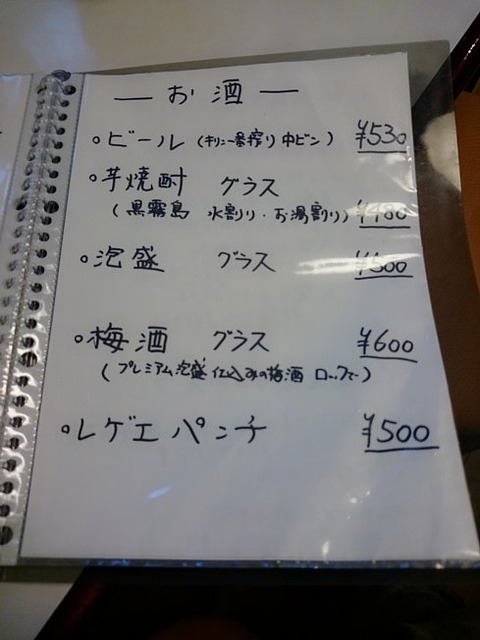 — お酒 —
・ビール (キリン一番搾り 中ビン) ¥530
・芋焼酎 グラス
(黒霧島 水割り・お湯割り) ¥480
・泡盛 グラス ¥500
・梅酒 グラス ¥600
(プレミアム泡盛仕込みの梅酒 ロックで)
・レゲエパンチ ¥500